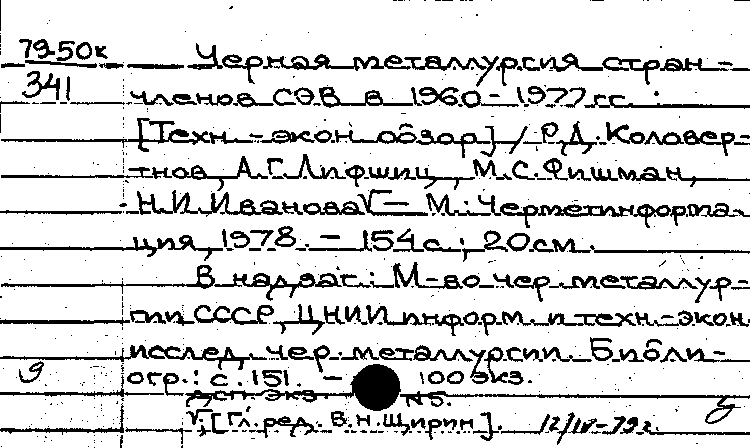 79-50к
341
Черная металлургия стран -
членов СЭВ в 1960 - 1977 гг.
[Техн. - экон обзор] / Р.Д. Коловер-
тнов, А.Г. Лифшиц, М.С. Фишман,
Н.И. Иванова √ — М.: Черметинформа-
ция, 1978. - 154 с.; 20 см.
В надзаг.: М-во чер. металлур-
гии СССР, ЦНИИ информ. и техн.-экон.
исслед. чер. металлургии. Библи-
огр.: с. 151. - 100 экз.
дсп. экз. №5.
√; [Гл. ред. В.Н. Щирин]. 12/IV-79г.